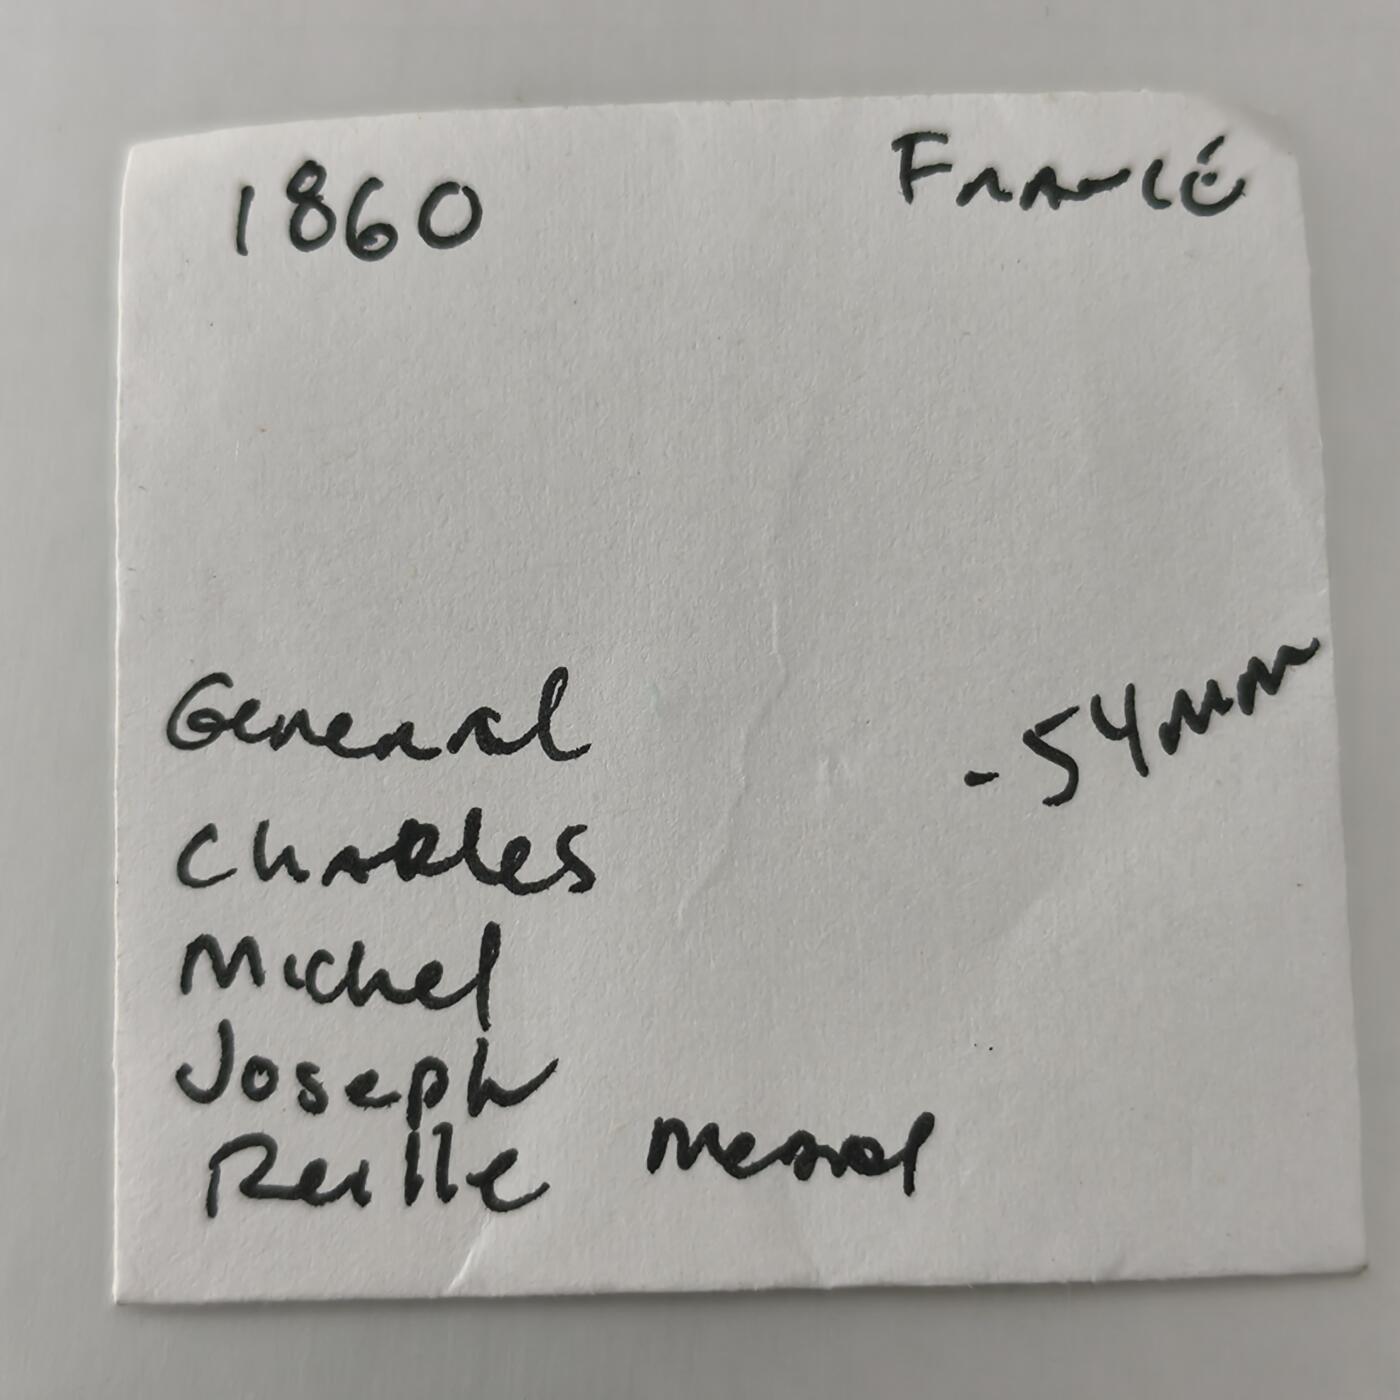 1860 FRANCÉ
General
- 54mm
Charles
Michel
Joseph
Reille medal